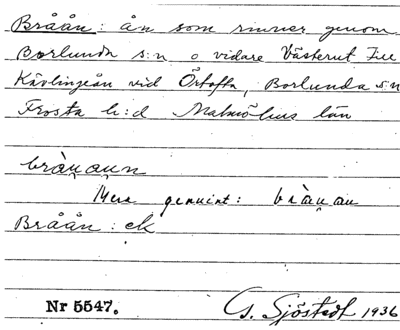 Bråån: ån som rinner genom
Borlunda s:n o vidare Västerut till
Kävlingeån vid Örtofta, Borlunda s:n
Frosta h:d Malmöhus län
bràu̯au̯n
Mera genuint: bràu̯au
Bråån: ck
Nr 5547.
G. Sjöstedt 1936